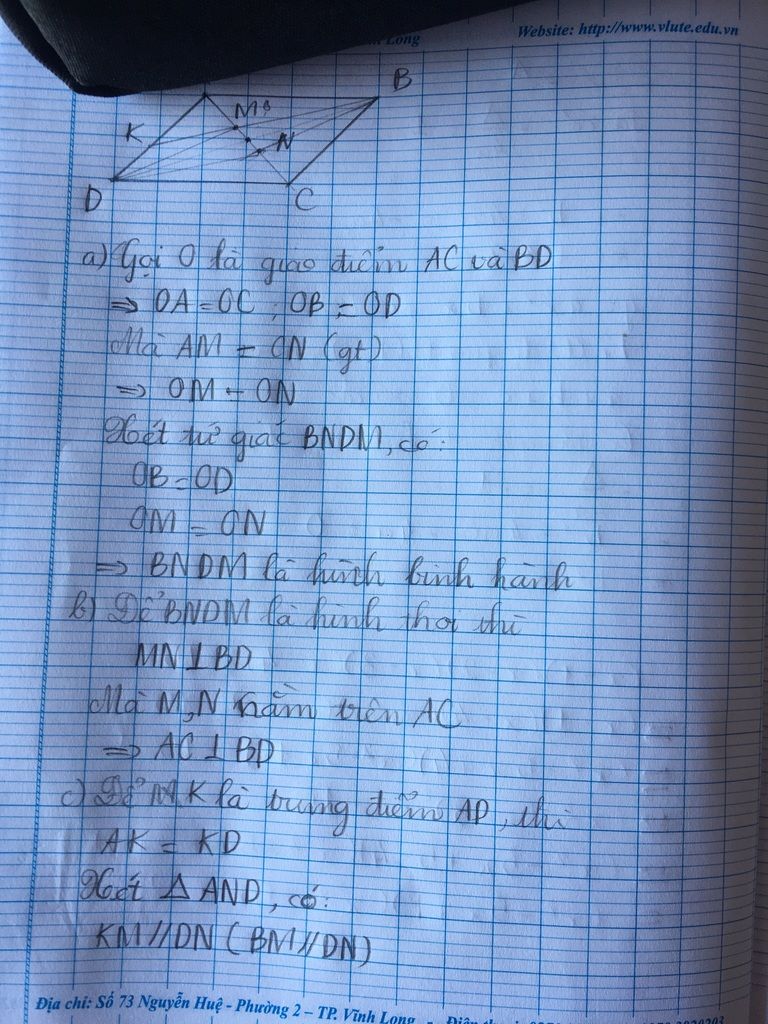 Long
Website: http://www.vlute.edu.vn
B
M
K
N
D
C
a) Gọi O là giao điểm AC và BD
⇒ OA = OC ; OB = OD
Mà AM = CN (gt)
⇒ OM = ON
Xét tứ giác BNDM, có:
OB = OD
OM = ON
⇒ BNDM là hình bình hành
b) Để BNDM là hình thoi thì
MN ⊥ BD
Mà M, N nằm trên AC
⇒ AC ⊥ BD
c) Để K là trung điểm AD, thì
AK = KD
Xét △ AND, có:
KM // DN ( BM // DN )
Địa chỉ: Số 73 Nguyễn Huệ - Phường 2 – TP. Vĩnh Long